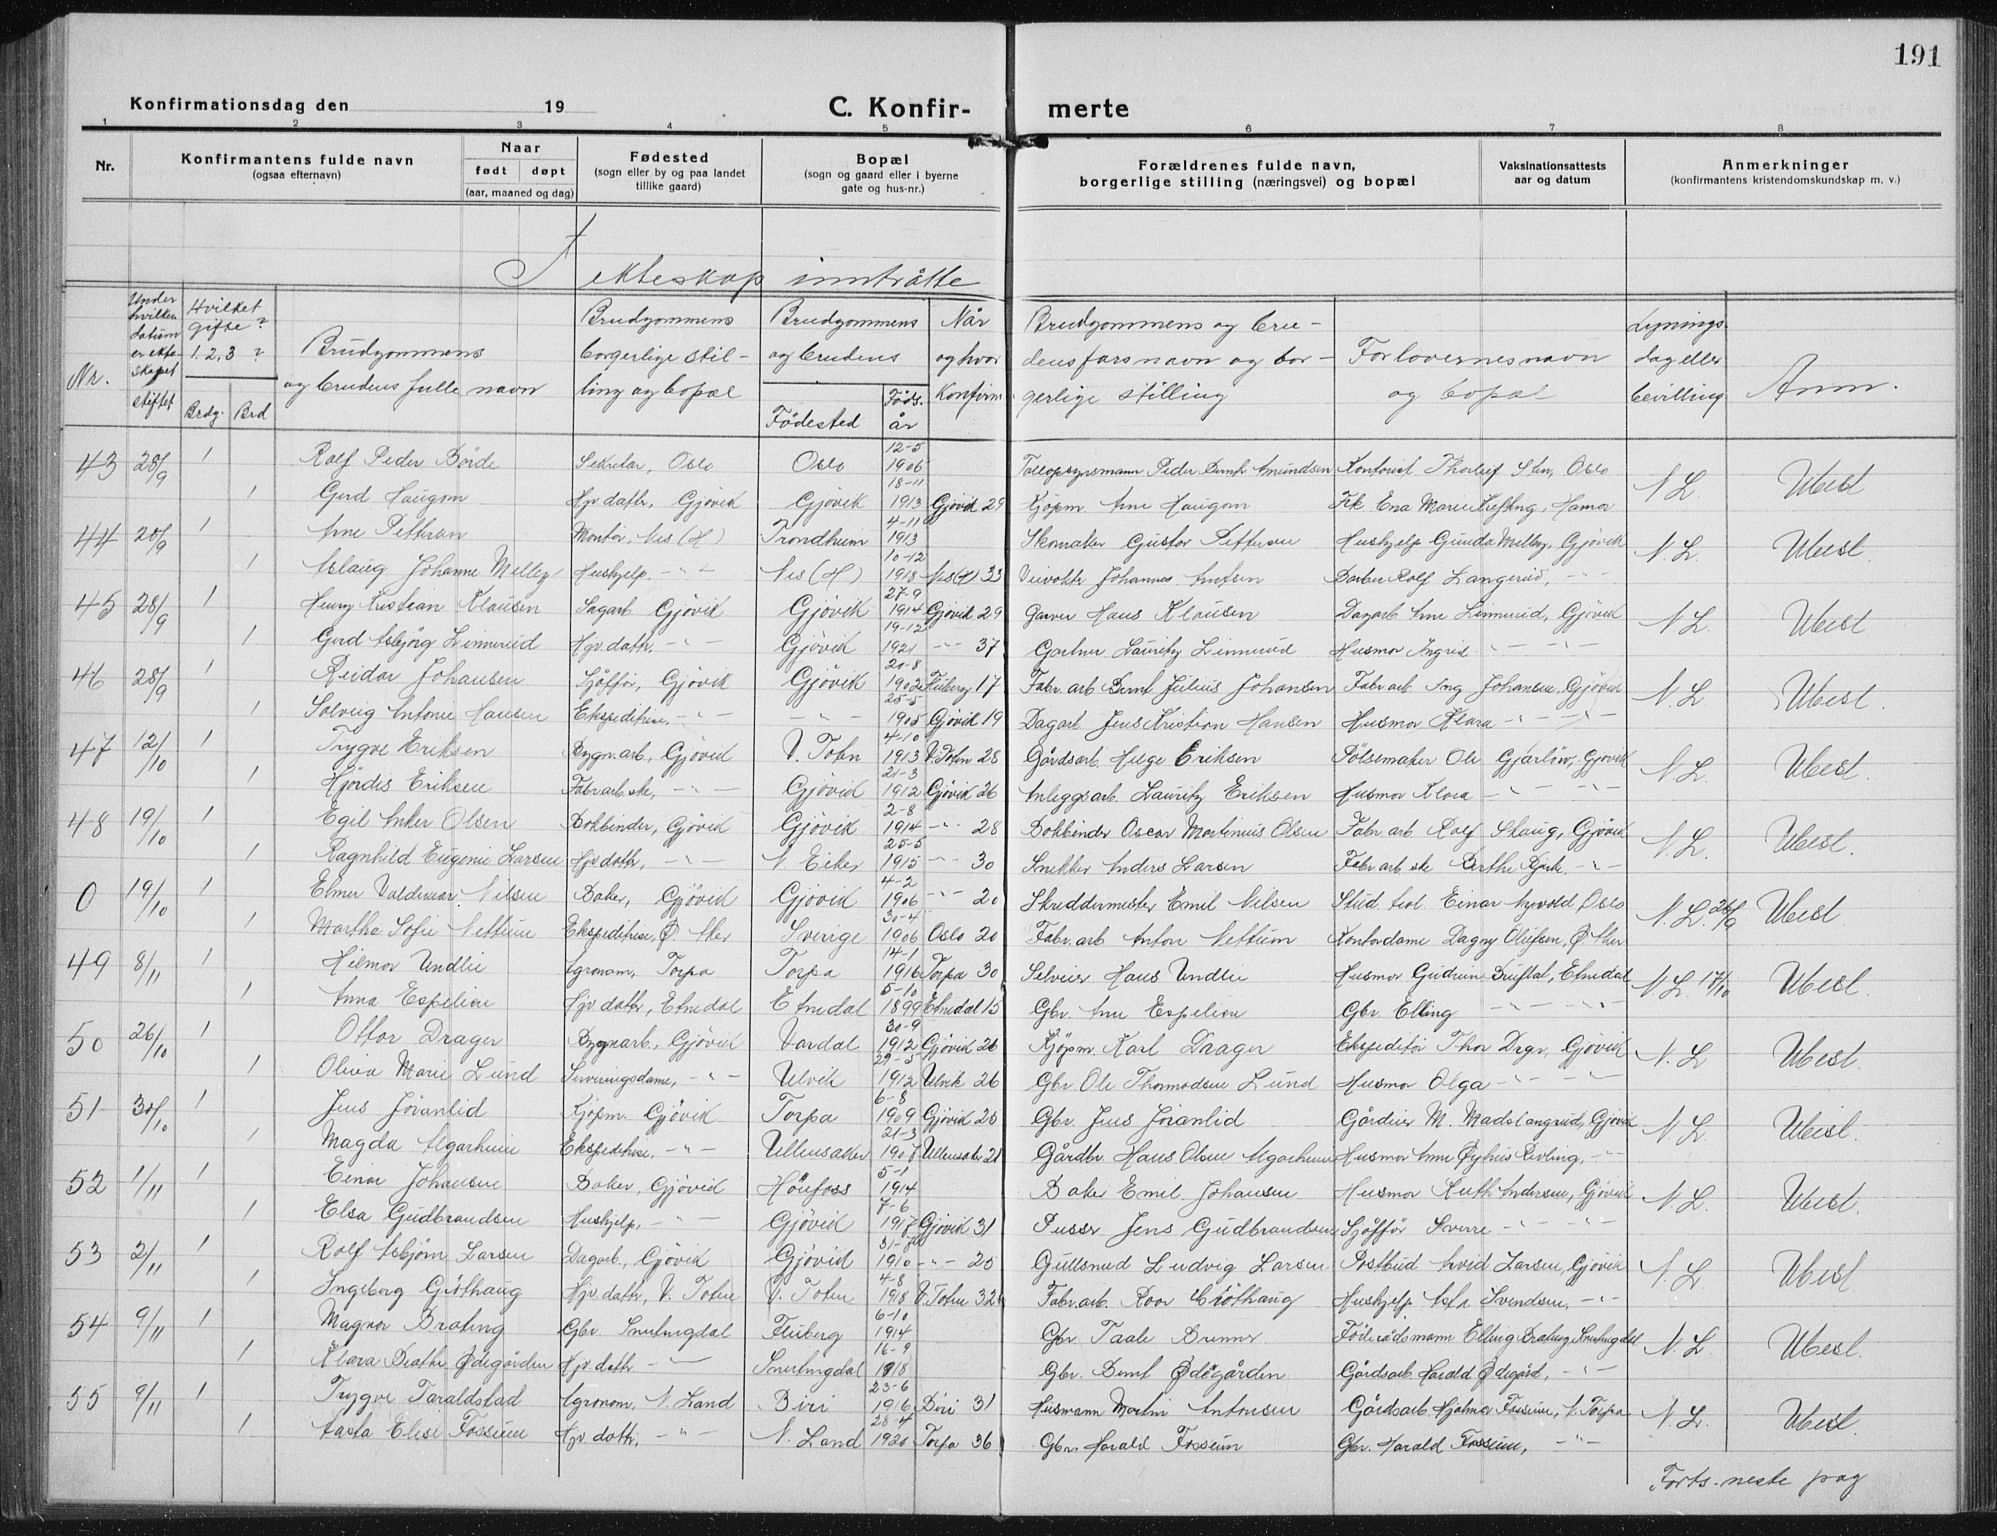 191
Konfirmationsdag den 19
C. Konfir- merte
1 2 3 4 5 6 7 8
Nr.
Konfirmantens fulde navn
(ogsaa efternavn)
Naar
født døpt
(aar, maaned og dag)
Fødested
(sogn eller by og paa landet
tillike gaard)
Bopæl
(sogn og gaard eller i byerne
gate og hus-nr.)
Forældrenes fulde navn,
borgerlige stilling (næringsvei) og bopæl
Vaksinationsattests
aar og datum
Anmerkninger
(konfirmantens kristendomskundskap m. v.)
ekteskap inntrådte
Nr.
Under
hvilken
datum
er ekte-
skapet
stiftet
Hvilket
gifte?
1, 2, 3 ?
Brdg. Brd
Brudgommens
og brudens fulle navn
Brudgommens
borgerlige stil-
ling og bopæl
Brudgommens
og brudens
Fødested
Føds.
år
Når
og hvor
konfirm
Brudgommens og bru-
dens fars navn og bor-
gerlige stilling
Forlovernes navn
og bopæl
Lysnings
dag eller
bevilling
Anm.
43 28/9 1 Rolf Peder Börde Sekretær, Oslo Oslo 12-5 1906 Peder Bernt Amundsen Kontorist Thorleif Oslo N.L. Ubesl.
1 Gerd Haugom Hjv. datter, Gjövik Gjövik 18-11 1913 Gjövik 29 Kjöpm. Arne Haugom Frk. Ena Marie Hamar
44 28/9 1 Arne Pettersen Montör, Nes (H) Trondheim 4-11 1913 Skomaker Gustav Pettersen Hushjelp Gunda Melby, Gjövik N.L. Ubesl
1 Aslaug Johanne Melby Hushjelp, -"- Nes (H) 10-12 1918 Nes (H) 33 Johannes Barber Rolf Langerud, -"-
45 28/9 1 Henry Kristian Klausen Sagarb. Gjövik Gjövik 27-9 1914 Gjövik 29 Garver Hans Klausen Dagarb. Arne Linnerud, Gjövik N.L. Ubesl
1 Gerd Asbjörg Linnerud Hjv. datter. -"- Gjövik 19-12 1921 -"- 37 Gartner Lauritz Linnerud Husmor Ingrid -"- -"-
46 28/9 1 Reidar Johansen Sjåffør, Gjövik Gjövik 20-8 1902 Fluberg 17 Fabr. arb. Bernt Julius Johansen Fabr. arb. Ing. Johansen, Gjövik N.L. Ubesl.
1 Solveig Antonie Hansen Ekspeditrise, -"- -"- 25-5 1905 Gjövik 19 Dagarb. Jens Kristian Hansen Husmor Klara -"- -"-
47 12/10 1 Trygve Eriksen Bygn.arb., Gjövik V. Toten 4-10 1913 V. Toten 28 Gårdsarb. Helge Eriksen Pölsemaker Ole Gjövik N.L. Ubesl.
1 Hjördis Eriksen Fabr.arb.ske, -"- Gjövik 21-3 1912 Gjövik 26 Anleggsarb. Lauritz Eriksen Husmor Klara -"- -"-
48 19/10 1 Egil Anker Olsen Bokbinder, Gjövik Gjövik 2-8 1914 -"- 28 Bokbinder Oscar Martinius Olsen Fabr. arb. Rolf Skaug, Gjövik N.L. Ubesl.
1 Ragnhild Eugenie Larsen Hjv. datter, -"- N. Eiker 25-5 1915 -"- 30 Snekker Anders Larsen Fabr. arb. ske Berthe -"-
0 19/10 1 Elmer Valdemar Nilsen Baker, Gjövik Gjövik 4-2 1906 -"- 20 Skreddermester Emil Nilsen Stud. teol. Einar Oslo N.L. 26/9 Ubesl.
1 Martha Sofie Nettum Ekspeditrise, Ø. Aker Sverige 30-4 1906 Oslo 20 Fabr. arb. Anton Nettum Kontordame Dagny Olufsen, Ø. Aker
49 8/11 1 Hilmar Undlie Agronom, Torpa Torpa 14-1 1916 Torpa 30 Selveier Hans Undlie Husmor Gudrun Etnedal N.L. 17/10 Ubesl.
1 Anna Espelien Hjv. datter, Etnedal Etnedal 5-10 1899 Etnedal 15 Gbr. Arne Espelien Gbr. Elling -"- -"-
50 26/10 1 Ottar Drager Bygn.arb., Gjövik Vardal 30-9 1912 Gjövik 26 Kjöpm. Karl Draager Ekspeditør Thor Gjövik N.L. Ubesl.
1 Oliva Marie Lund Serveringsdame, -"- Ulvik 29-5 1912 Ulvik 26 Gbr. Ole Thormodsen Lund Husmor Olga -"- -"-
51 30/10 1 Jens Jöranlid Kjöpm. Gjövik Torpa 6-8 1909 Gjövik 25 Gbr. Jens Jöranlid Gårdeier M. Madslangrud, Gjövik N.L. Ubesl.
1 Magda Ekspeditrise, -"- Ullensaker 21-3 1907 Ullensaker 21 Gårdbr. Hans Olsen Husmor Anne -"-
52 1/11 1 Einar Johansen Baker, Gjövik Hönefoss 5-1 1914 Baker Emil Johansen Husmor Ruth Andersen, Gjövik N.L. Ubesl.
1 Elsa Gudbrandsen Hushjelp, -"- Gjövik 7-6 1917 Gjövik 31 Pusser Jens Gudbrandsen Sjåffør Sverre -"- -"-
53 2/11 1 Rolf Asbjörn Larsen Dagarb., Gjövik Gjövik 1910 -"- 25 Gullsmed Ludvig Larsen Postbud Arvid Larsen, Gjövik N.L. Ubesl
1 Ingeborg Gröthaug Hjv. datter, V. Toten V. Toten 4-8 1918 V. Toten 32 Fabr. arb. Roar Gröthaug Hushjelp Asta Svendsen, -"-
54 9/11 1 Magnar Brateng Gbr. Snertingdal Fluberg 6-10 1914 Gbr. Paale Føderådsmann Elling Brateng Snertingdal N.L. Ubesl.
1 Klara Beathe Ødegården Hjv. datter -"- Snertingdal 16-9 1918 Gbr. Bernt Ødegården Gårdsarb. Harald Ødegård, -"-
55 9/11 1 Trygve Taraldstad Agronom, N. Land Biri 23-6 1916 Biri 31 Husmann Martin Antonsen Gårdsarb. Hjalmar Fossum, N. Torpa N.L. Ubesl
1 Aasta Elise Fossum Hjv. datter, -"- N. Land 28-4 1920 Torpa 36 Gbr. Harald Fossum Gbr. Harald Fossum, -"-
Forts. neste pag